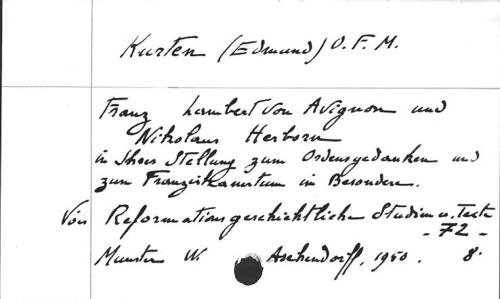 Kurten (Edmund) O. F. M.
Franz Lambert von Avignon und
Nikolaus Herborn
in Ihrer Stellung zum Ordensgedanken und
zum Franziskanertum in Besondere.
Voir Reformationsgeschichtliche Studien u. Texte
- 72 -
Munster W. Aschendorff, 1950. 8°